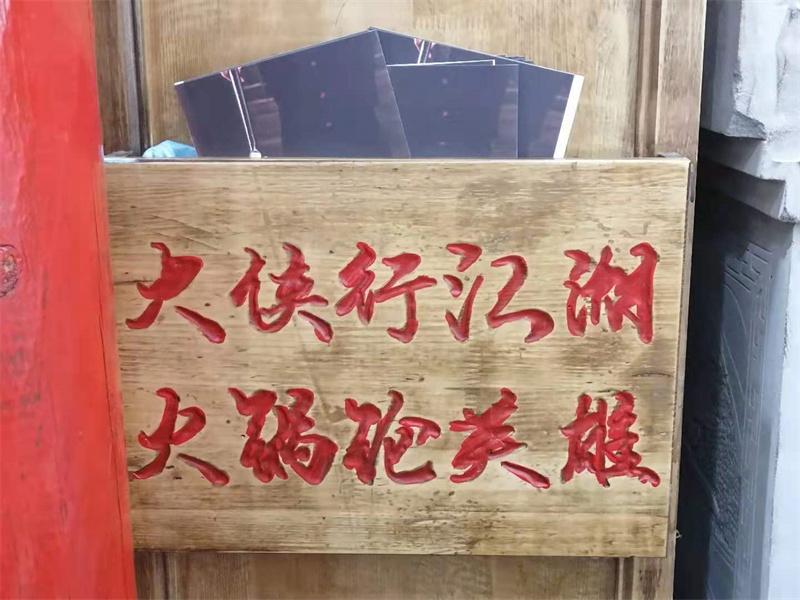 大侠行江湖
火锅配英雄